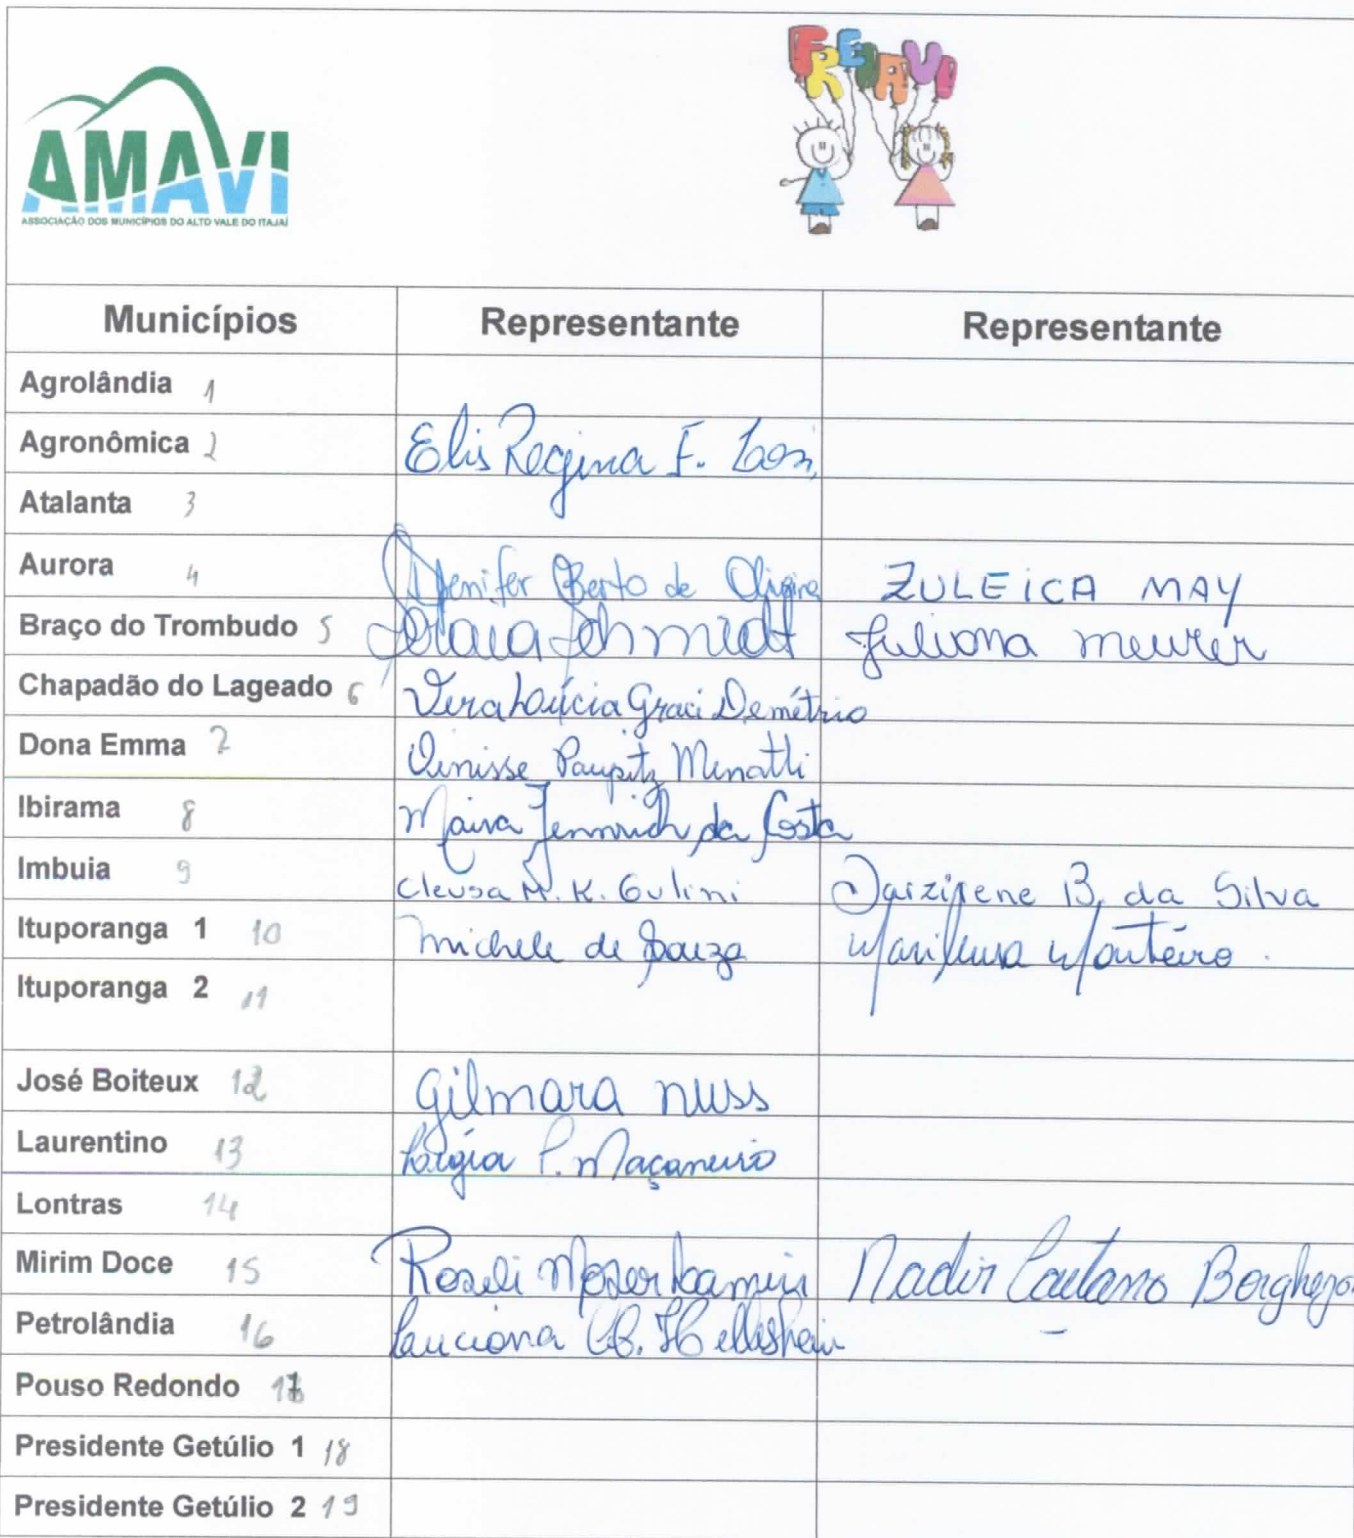 FRENAVI
AMAVI
ASSOCIAÇÃO DOS MUNICÍPIOS DO ALTO VALE DO ITAJAÍ
Municípios Representante Representante
Agrolândia 1
Agronômica 2 Elis Regina F.
Atalanta 3
Aurora 4 Jenifer Berto de Oliveira ZULEICA MAY
Braço do Trombudo 5 Schmidt Juliana Meurer
Chapadão do Lageado 6 Vera Lúcia Graci Demétrio
Dona Emma 7 Denisse Paupitz Menatti
Ibirama 8 Maiva da Costa
Imbuia 9 Cleusa M. K. Gulini B. da Silva
Ituporanga 1 10 Michele de Souza Marileusa Monteiro.
Ituporanga 2 11
José Boiteux 12 Gilmara Nuss
Laurentino 13 Lígia P. Maçaneiro
Lontras 14
Mirim Doce 15 Roseli Moser Nadir Caetano
Petrolândia 16 Luciana B.
Pouso Redondo 17
Presidente Getúlio 1 18
Presidente Getúlio 2 19